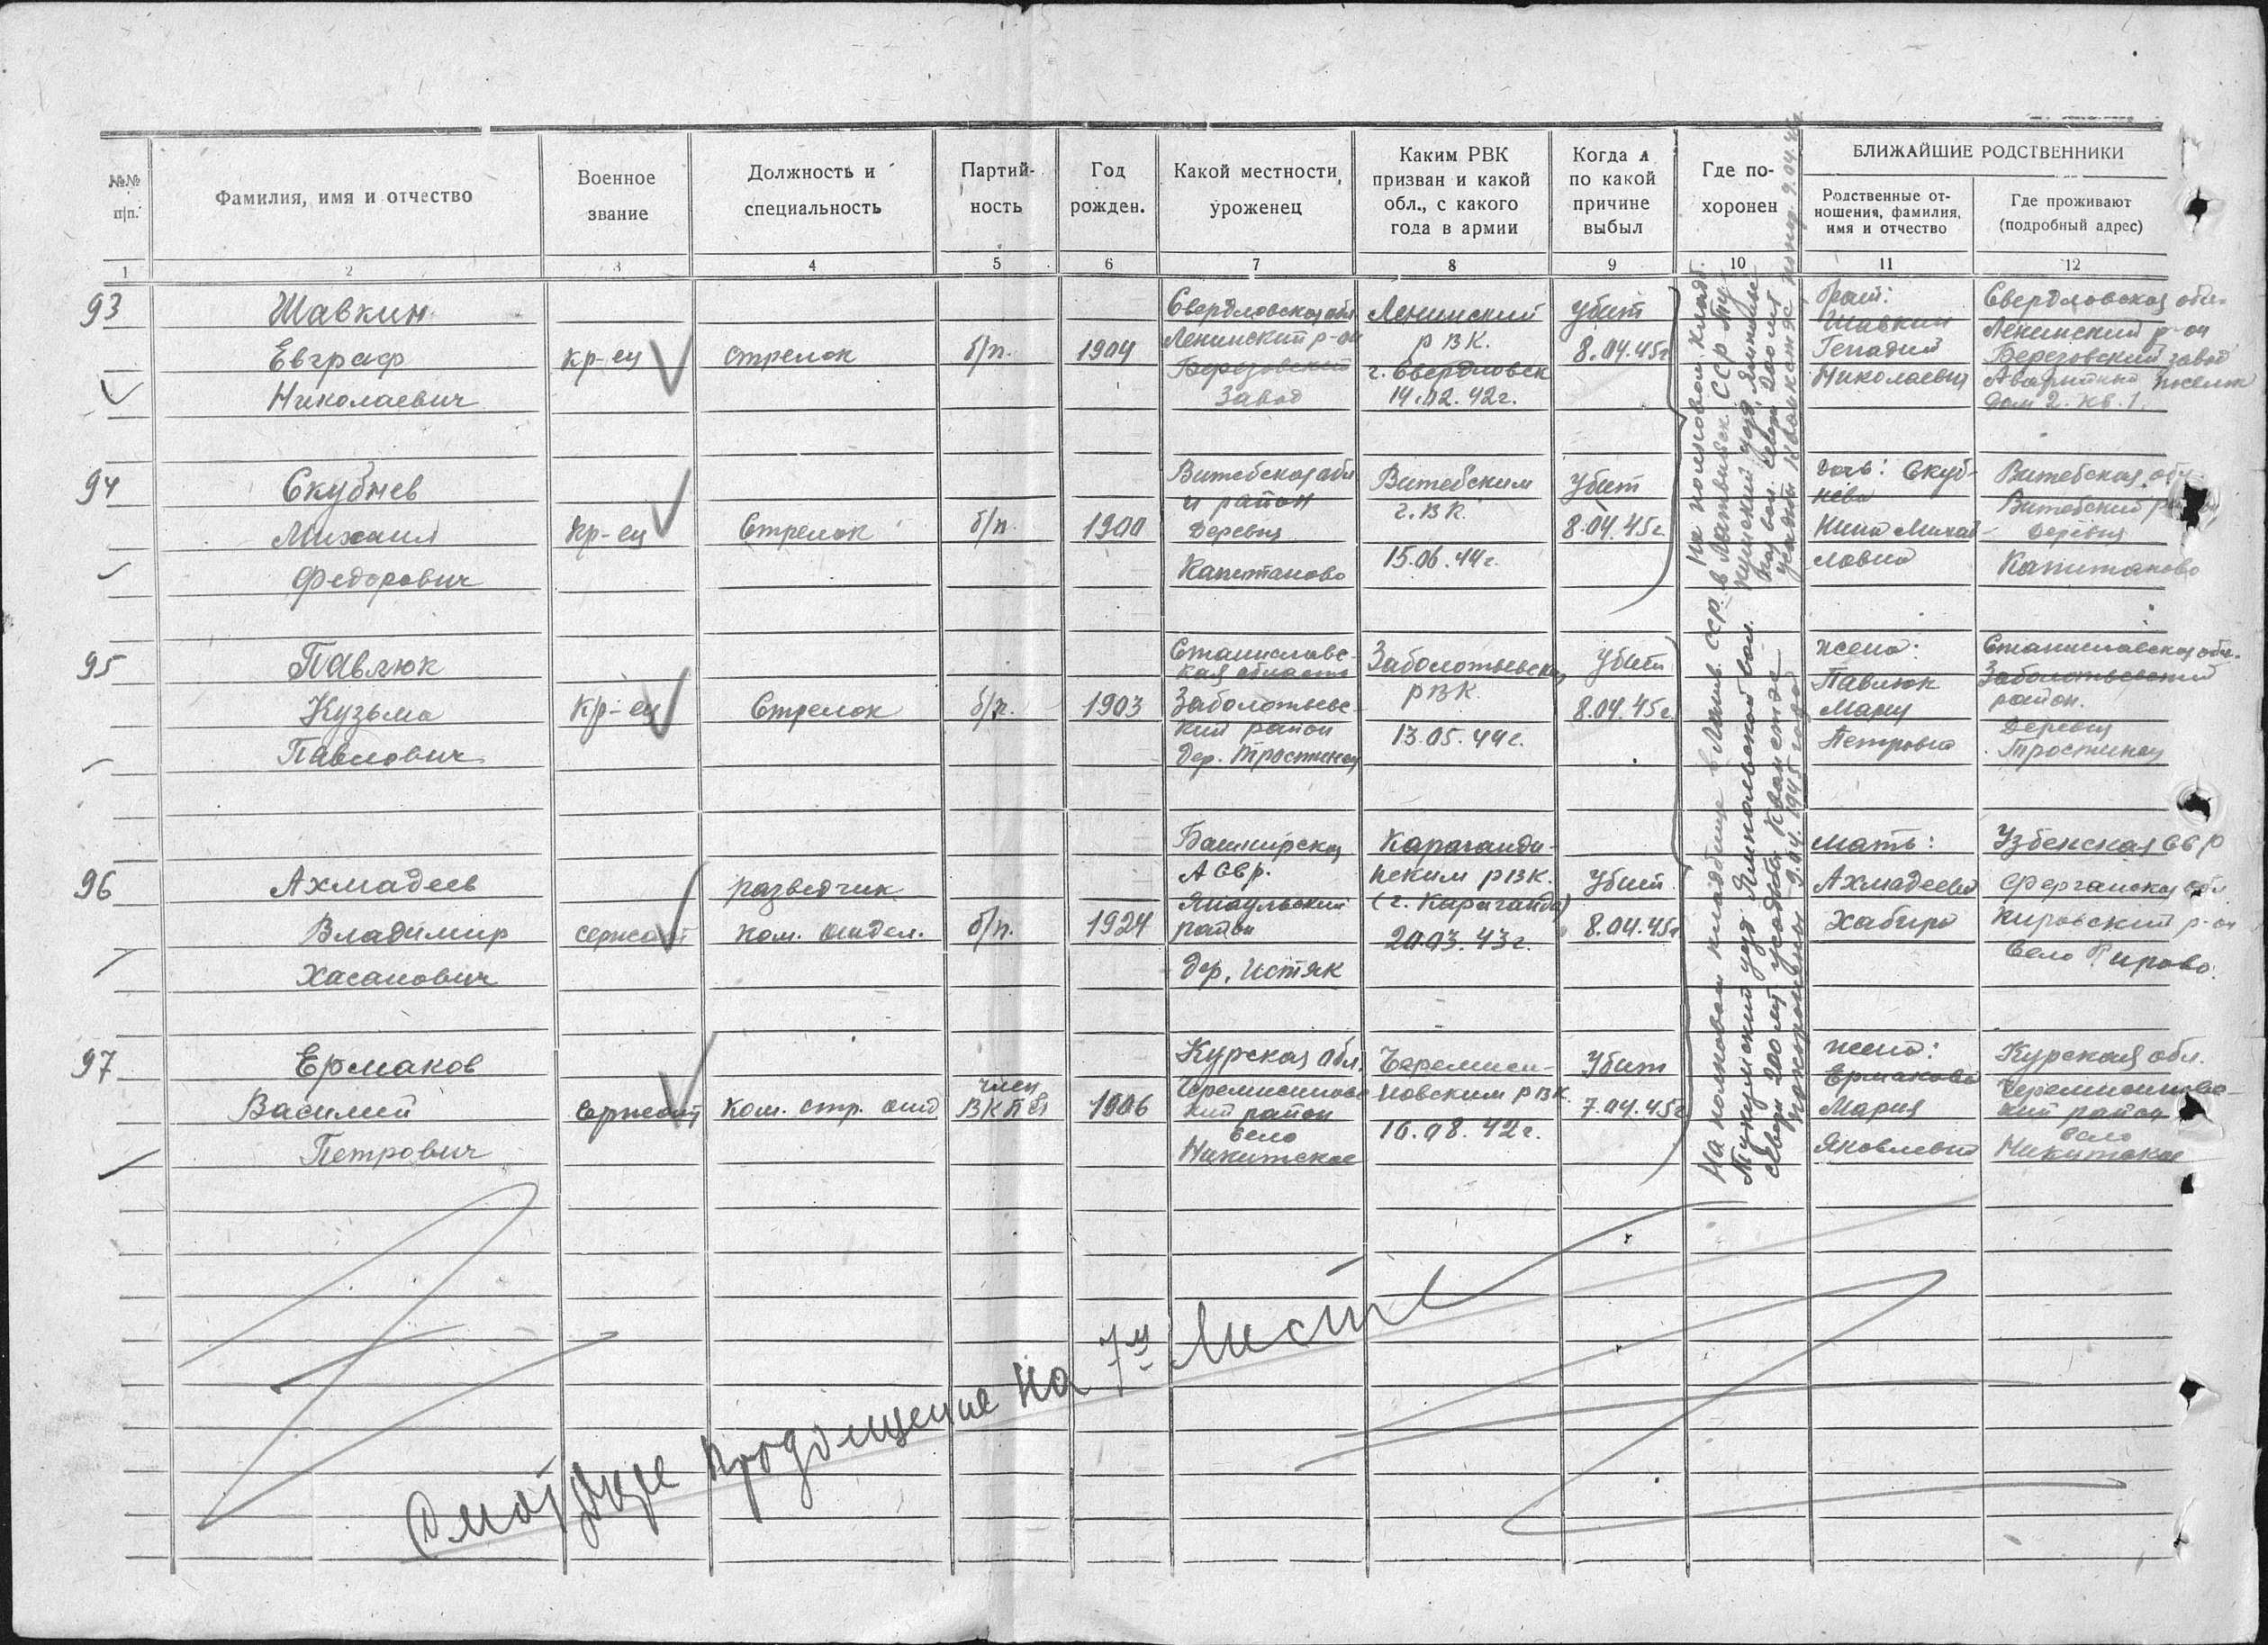 №№ п/п.
Фамилия, имя и отчество
Военное звание
Должность и специальность
Партий-
ность
Год рожден.
Какой местности уроженец
Каким РВК
призван и какой
обл., с какого
года в армии
Когда и
по какой
причине
выбыл
Где по-
хоронен
БЛИЖАЙШИЕ РОДСТВЕННИКИ
Родственные от-
ношения, фамилия,
имя и отчество
Где проживают
(подробный адрес)
1 2 3 4 5 6 7 8 9 10 11 12
93
Шавкин
Евграф
Николаевич
кр-ец
стрелок
б/п.
1904
Свердловская обл
Ленинский р-он
Березовский
завод
Ленинский
РВК.
г. Свердловск
14.02.42г.
убит
8.04.45г
брат:
Шавкин
Генадий
Николаевич
Свердловская обл.
Ленинский р-он
Березовский завод
поселок
Дом 2. кв. 1.
94
Скубнев
Михаил
Федорович
Кр-ец
Стрелок
б/п.
1900
Витебская обл
и район
Деревня
Капитаново
Витебским
г.ВК.
15.06.44г.
Убит
8.04.45г.
дочь: Скуб-
нева
Нина Михай-
ловна
Витебская обл
Витебский район
Деревня
Капитаново
95
Павлюк
Кузьма
Павлович
Кр-ец
Стрелок
б/п.
1903
Станиславс-
кая область
Заболотьевс-
кий район
Дер. Тростинец
РВК.
13.05.44г.
Убит
8.04.45г.
жена:
Павлюк
Мария
Петровна
Станиславская обл.
Заболотьевский
район.
Деревня
Тростинец
96
Ахмадеев
Владимир
Хасанович
сержант
разведчик
ком. отдел.
б/п.
1924
Башкирская
АССР.
Янаульский
район
дер. Истяк
Караганди-
нским РВК.
(г. Караганда)
20.03.43г.
Убит
8.04.45г
мать:
Ахмадеева
Хабира
Узбекская ССР
Ферганская обл
Кировский р-он
Село
97
Ермаков
Василий
Петрович
сержант
Ком. стр. отд
член
ВКП(б)
1906
Курская обл.
Черемисиновс-
кий район
село
Никитское
Черемиси-
новским РВК.
16.08.42г.
Убит
7.04.45г
жена:
Ермакова
Мария
Яковлевна
Курская обл.
Черемисиновс-
кий район
село
Никитское
На полковом кладбище в Латв. ССР.
Тукумский уезд Яункольской вол.
север 200 мт усадьбы Квамстэс
похоронены 9.04.1945 года
Смотри продолжение на 7й лист